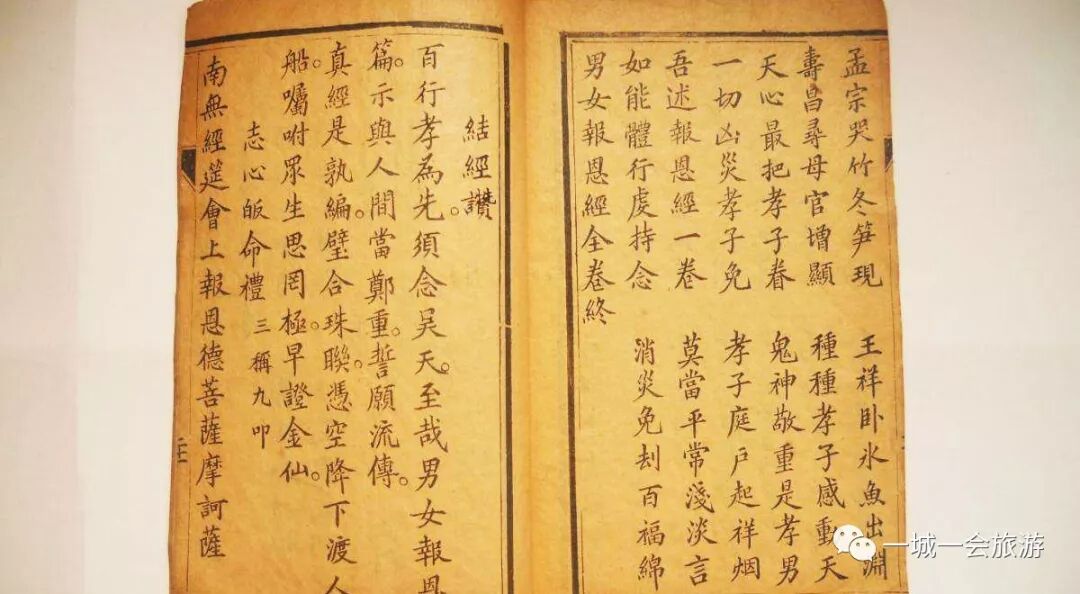 孟宗哭竹冬笋現 王祥卧氷魚出淵
壽昌尋母官增顯 種種孝子感動天
天心最把孝子眷 鬼神敬重是孝男
一切凶災孝子免 孝子庭户起祥烟
吾述報恩經一卷 莫當平常淺淡言
如能體行虔持念 消災免刦百福綿
男女報恩經全卷終
結經讚
百行孝為先。須念吴天。至哉男女報恩
篇。示與人間當鄭重。誓願流傳。
真經是孰編。璧合珠聯。憑空降下渡人
船。囑咐眾生思罔極。早證金仙。
志心皈命禮 三稱九叩
南無經筵會上報恩德菩薩摩訶薩
一城一会旅游